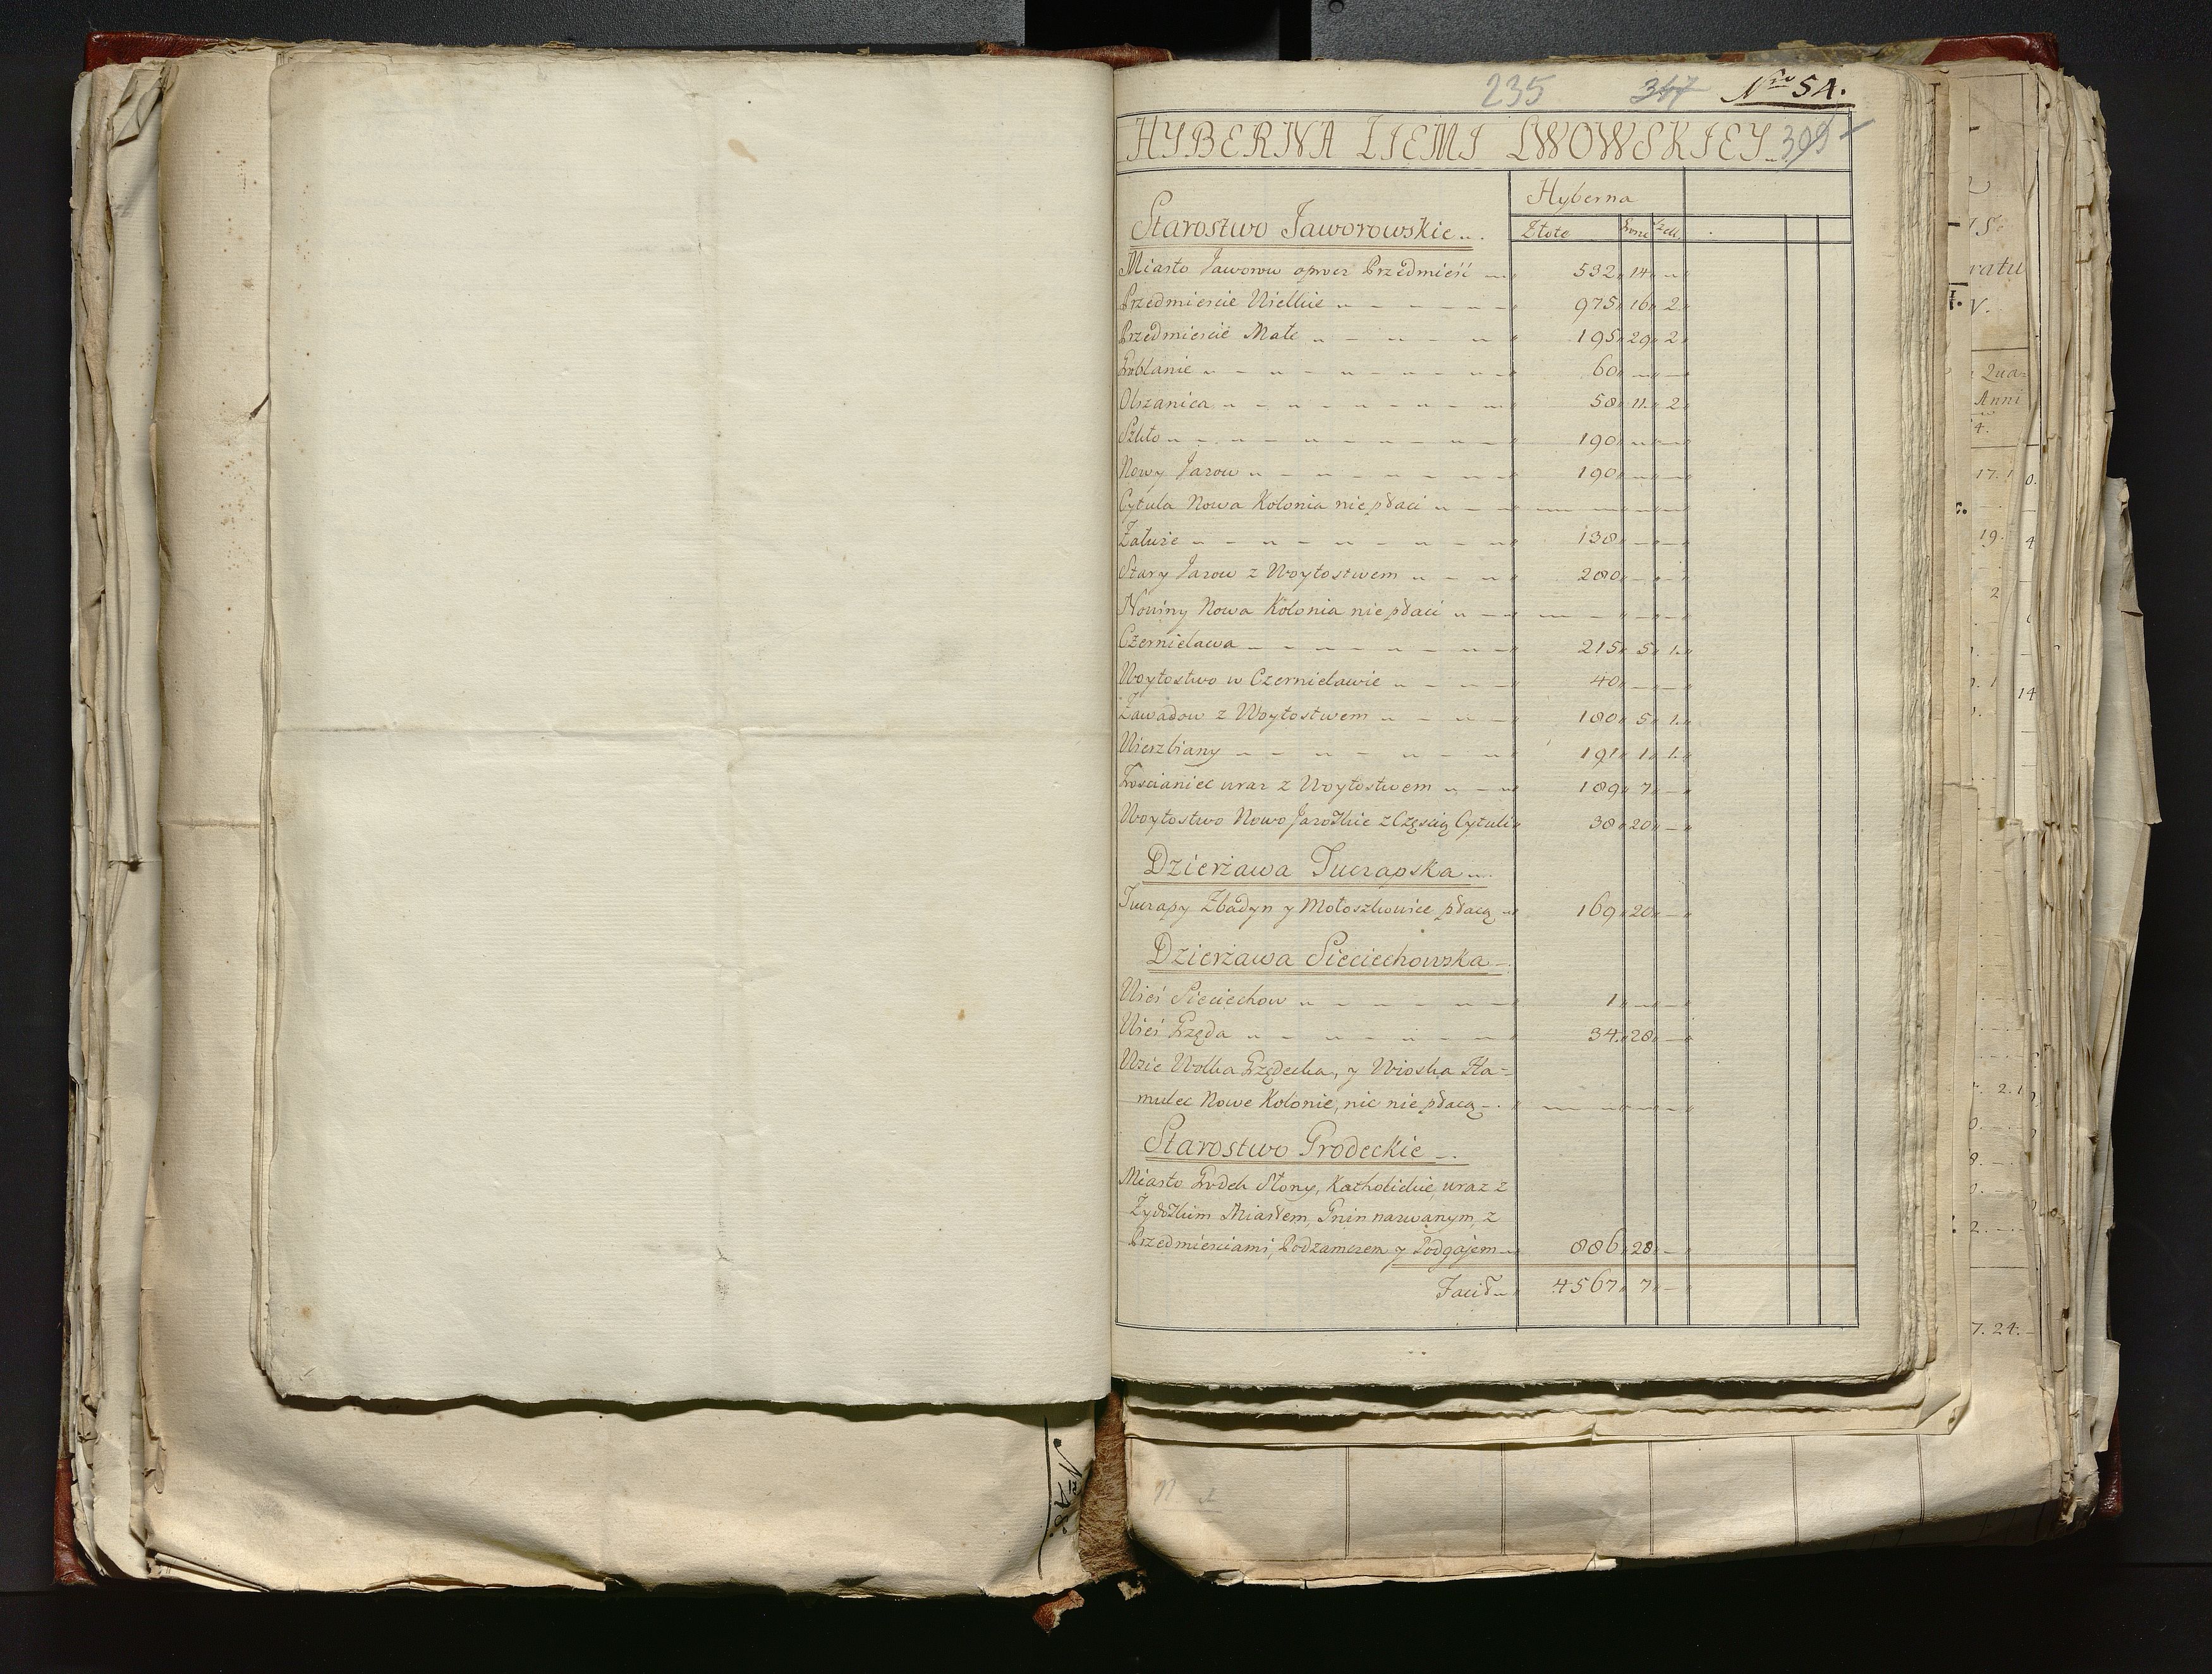 235 347 Nro 54.
HYBERNA ZIEMI LWOWSKIEY 309
Hyberna
Starostwo Jaworowskie
Złote Grosze Szell.
Miasto Jaworow oprocz Przedmieść 532 14
Przedmiescie Wielkie 975 16 2
Przedmiescie Małe 195 29 2
60
Olszanica 58 11 2
Szkło 190
Nowy Jazow 190
Cytula Nowa Kolonia nie płaci
Załuże 138
Stary Jazow z Woytostwem 280
Nowiny Nowa Kolonia nie płaci
Czernielawa 215 5 1
Woytostwo w Czernielawie 40
Zawadow z Woytostwem 180 5 1
Wierzbiany 191 1 1
Troscianiec wraz z Woytostwem 189 7
Woytostwo Nowo Jazowskie z Częscią Cytuli 38 20
Dzierżawa Tuczapska
Tuczapy Zbadyn y Mołoszkowice płacą 169 20
Dzierżawa Sieciechowska
Wieś Sieciechow 1
Wieś Grzęda 34 28
Wsie Wolka Grzędecka, y Wioska Ha-
mulec Nowe Kolonie, nic nie płacą
Starostwo Grodeckie
Miasto Grodek Słony, Katholickie wraz z
Zydowskim Miastem, Gnin nazwanym, z
Przedmiesciami, Podzamczem y Podgajem 886 28
Facit 4567 7
Nro 48.
7. 24.